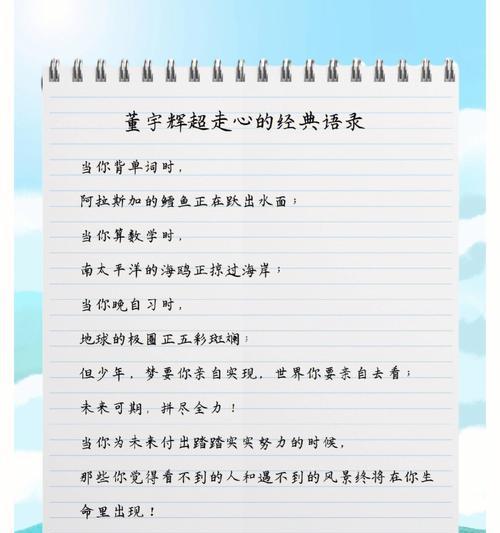 董宇辉超走心的经典语录
当你背单词时，
阿拉斯加的鳕鱼正在跃出水面；
当你算数学时，
南太平洋的海鸥正掠过海岸；
当你晚自习时，
地球的极圈正五彩斑斓；
但少年，梦要你亲自实现，世界你要亲自去看；
未来可期，拼尽全力！
当你为未来付出踏踏实实努力的时候，
那些你觉得看不到的人和遇不到的风景终将在你生
命里出现！